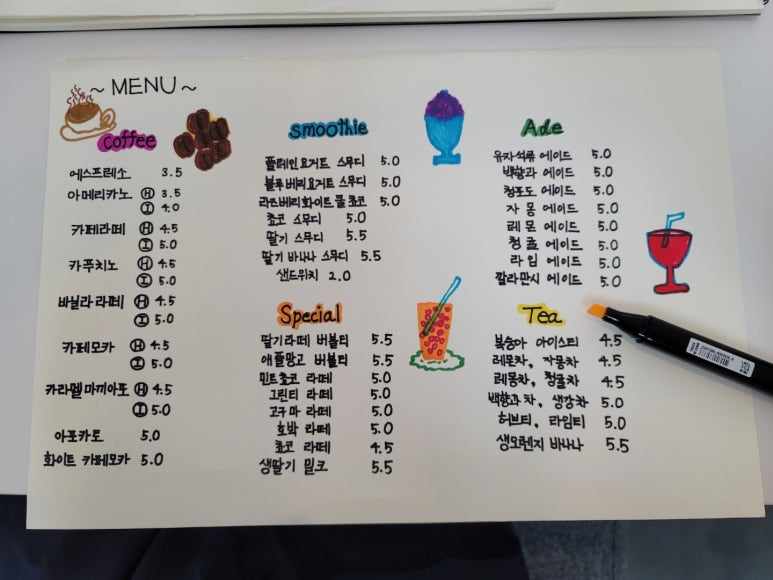 ~ MENU ~
coffee
에스프레소 3.5
아메리카노 H 3.5
I 4.0
카페라떼 H 4.5
I 5.0
카푸치노 H 4.5
I 5.0
바닐라 라떼 H 4.5
I 5.0
카페모카 H 4.5
I 5.0
카라멜 마끼아또 H 4.5
I 5.0
아포카토 5.0
화이트 카페모카 5.0
smoothie
플레인 요거트 스무디 5.0
블루베리 요거트 스무디 5.0
라즈베리 화이트 쿨 쵸코 5.0
쵸코 스무디 5.0
딸기 스무디 5.5
딸기 바나나 스무디 5.5
샌드위치 2.0
Special
딸기라떼 버블티 5.5
애플망고 버블티 5.5
민트쵸코 라떼 5.0
그린티 라떼 5.0
고구마 라떼 5.0
호박 라떼 5.0
쵸코 라떼 4.5
생딸기 밀크 5.5
Ade
유자석류 에이드 5.0
백향과 에이드 5.0
청포도 에이드 5.0
자몽 에이드 5.0
레몬 에이드 5.0
청귤 에이드 5.0
라임 에이드 5.0
깔라만시 에이드 5.0
Tea
복숭아 아이스티 4.5
레몬차, 자몽차 4.5
레몽차, 청귤차 4.5
백향과차, 생강차 5.0
허브티, 라임티 5.0
생오렌지 바나나 5.5